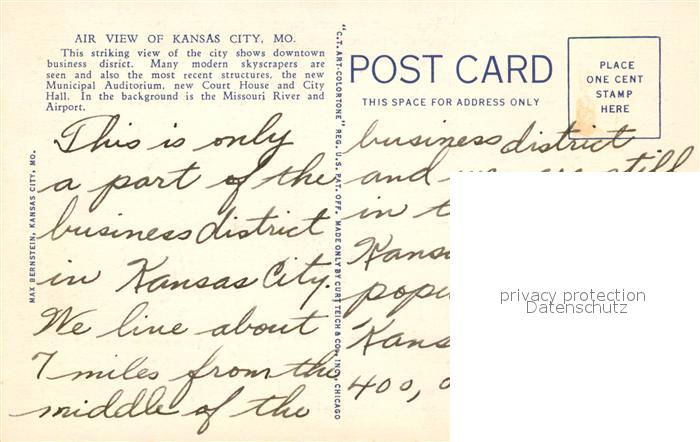 AIR VIEW OF KANSAS CITY, MO.
This striking view of the city shows downtown
business disrict. Many modern skyscrapers are
seen and also the most recent structures, the new
Municipal Auditorium, new Court House and City
Hall. In the background is the Missouri River and
Airport.
This is only
a part of the
business district
in Kansas City.
We live about
7 miles from the
middle of the
MAX BERNSTEIN, KANSAS CITY, MO.
"C.T. ART-COLORTONE" REG. U.S. PAT. OFF. MADE ONLY BY CURT TEICH & CO., INC., CHICAGO
POST CARD
THIS SPACE FOR ADDRESS ONLY
PLACE
ONE CENT
STAMP
HERE
business district
and we are still
in
400,
privacy protection
Datenschutz